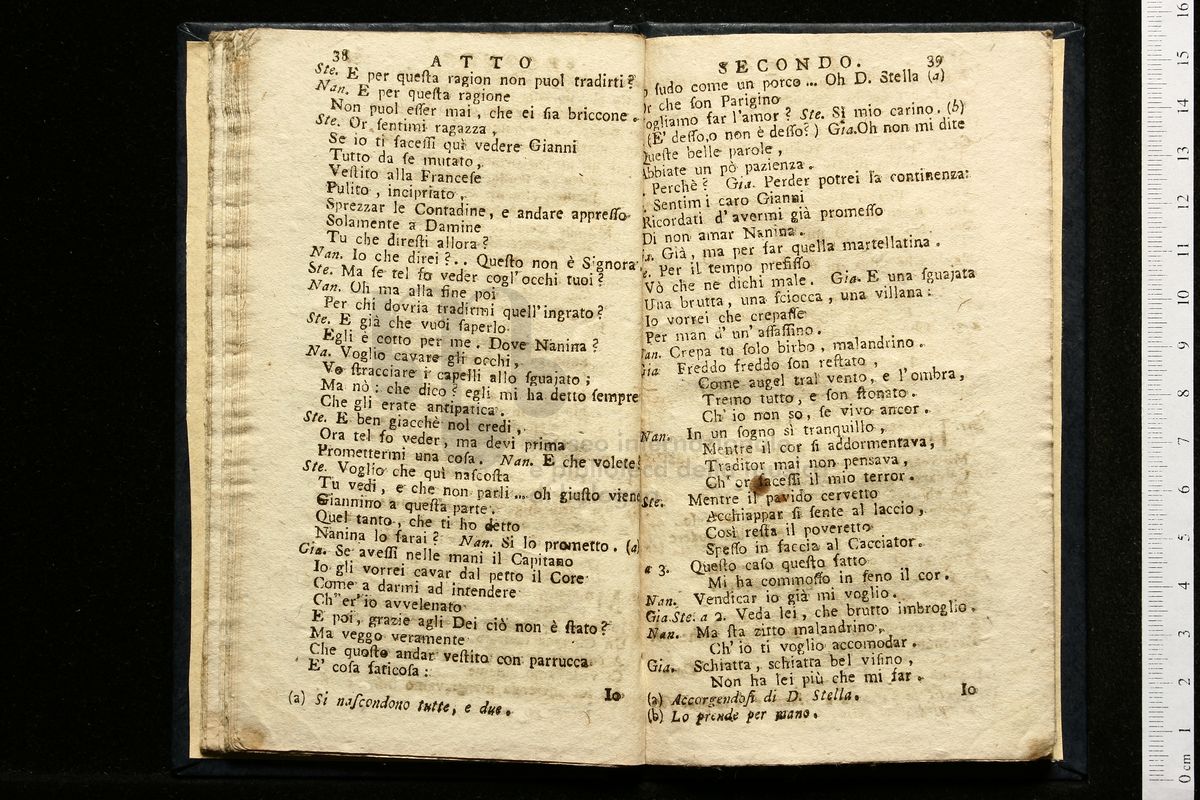 38
ATTO
Ste. E per queſta ragion non puol tradirti?
Nan. E per queſta ragione
Non puol eſſer mai, che ei ſia briccone.
Ste. Or ſentimi ragazza,
Se io ti faceſſi quì vedere Gianni
Tutto da ſe mutato,
Veſtito alla Franceſe
Pulito, incipriato,
Sprezzar le Contadine, e andare appreſſo
Solamente a Damine
Tu che direſti allora?
Nan. Io che direi?.. Queſto non è Signora,
Ste. Ma ſe tel fo veder cogl' occhi tuoi?
Nan. Oh ma alla fine poi
Per chi dovria tradirmi quell' ingrato?
Ste. E già che vuoi ſaperlo
Egli è cotto per me. Dove Nanina?
Na. Voglio cavare gli occhi,
Vo ſtracciare i capelli allo ſguajato;
Ma nò: che dico? egli mi ha detto ſempre
Che gli erate antipatica.
Ste. E ben giacchè nol credi,
Ora tel fo veder, ma devi prima
Promettermi una coſa. Nan. E che volete?
Ste. Voglio che quì naſcoſta
Tu vedi, e che non parli ... oh giuſto viene
Giannino a queſta parte.
Quel tanto, che ti ho detto
Nanina lo farai? Nan. Si lo prometto. (a)
Gia. Se aveſſi nelle mani il Capitano
Io gli vorrei cavar dal petto il Core
Come a darmi ad intendere
Ch' er' io avvelenato
E poi, grazie agli Dei ciò non è ſtato?
Ma veggo veramente
Che queſto andar veſtito con parrucca
E' coſa faticoſa:
Io
(a) Si naſcondono tutte, e due.
SECONDO. 39
ſudo come un porco ... Oh D. Stella (a)
Or che ſon Parigino
Vogliamo far l'amor? Ste. Sì mio carino. (b)
(E' deſſo,o non è deſſo?) Gia.Oh non mi dite
Queſte belle parole,
Abbiate un pò pazienza.
Perchè? Gia. Perder potrei la continenza:
Sentimi caro Gianni
Ricordati d'avermi già promeſſo
Di non amar Nanina.
Già, ma per far quella martellatina.
Per il tempo prefiſſo
Vò che ne dichi male. Gia. E una ſguajata
Una brutta, una ſciocca, una villana:
Io vorrei che crepaſſe
Per man d' un' aſſaſſino.
Nan. Crepa tu ſolo birbo, malandrino.
Gia. Freddo freddo ſon reſtato,
Come augel tral vento, e l'ombra,
Tremo tutto, e ſon ſtonato.
Ch' io non so, ſe vivo ancor.
Nan. In un ſogno sì tranquillo,
Mentre il cor ſi addormentava,
Traditor mai non penſava,
Ch' or faceſſi il mio terror.
Ste. Mentre il pavido cervetto
Acchiappar ſi ſente al laccio,
Così reſta il poveretto
Speſſo in faccia al Cacciator.
a 3. Queſto caſo queſto fatto
Mi ha commoſſo in ſeno il cor.
Nan. Vendicar io già mi voglio.
Gia.Ste. a 2. Veda lei, che brutto imbroglio.
Nan. Ma ſta zitto malandrino,
Ch' io ti voglio accomodar.
Gia. Schiatta, ſchiatta bel viſino,
Non ha lei più che mi far.
Io
(a) Accorgendoſi di D. Stella.
(b) Lo prende per mano.
0 cm 1 2 3 4 5 6 7 8 9 10 11 12 13 14 15 16